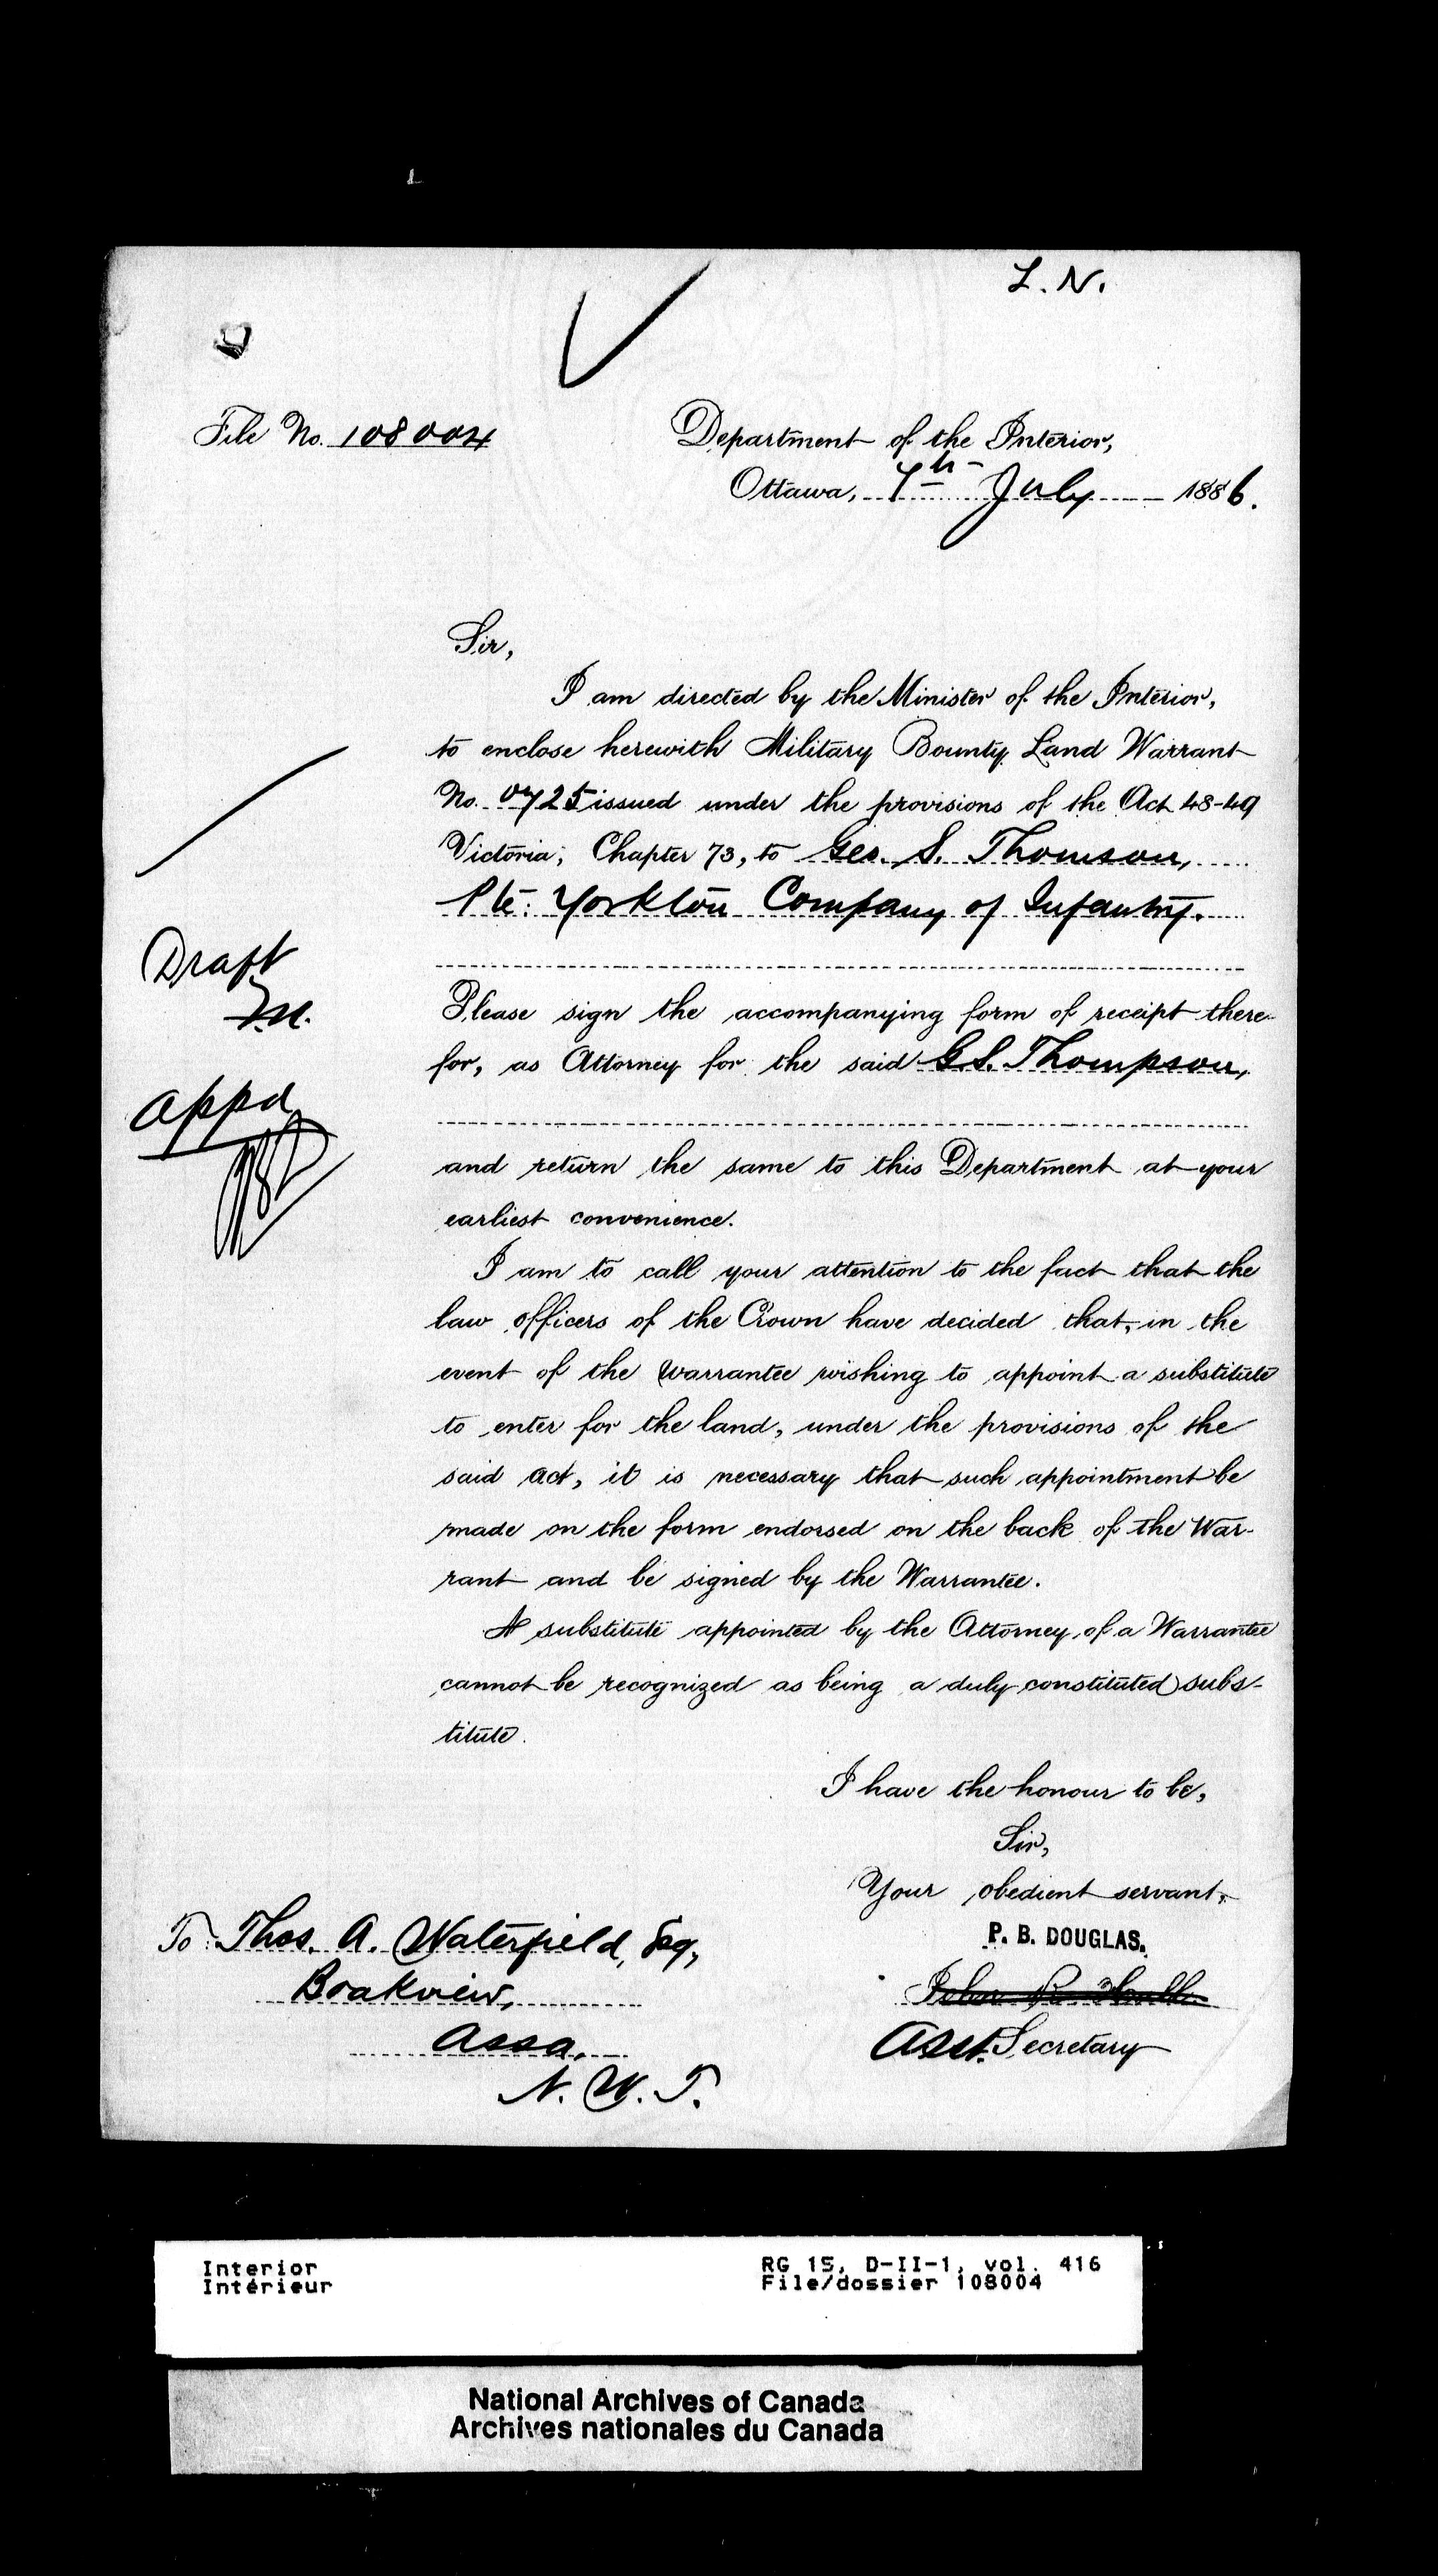 L. N.
File No. 108004
Department of the Interior,
Ottawa, 7th July 1886.
Sir,
I am directed by the Minister of the Interior,
to enclose herewith Military Bounty Land Warrant
No. 0725 issued under the provisions of the Act 48-49
Victoria, Chapter 73, to Geo. S. Thomson,
Pte: Yorkton Company of Infantry.
Draft
Please sign the accompanying form of receipt there-
for, as Attorney for the said G.S. Thompson,
appd
and return the same to this Department at your
earliest convenience.
I am to call your attention to the fact that the
law officers of the Crown have decided that, in the
event of the Warrantee wishing to appoint a substitute
to enter for the land, under the provisions of the
said Act, it is necessary that such appointment be
made on the form endorsed on the back of the War-
rant and be signed by the Warrantee.
A substitute appointed by the Attorney of a Warrantee
cannot be recognized as being a duly constituted subs-
titute.
I have the honour to be,
Sir,
Your obedient servant,
P. B. DOUGLAS.
Asst. Secretary
To Thos. A. Waterfield, Esq,
Boakview,
Assa.
N. W. T.
Interior
Intérieur
RG 15, D-II-1, vol. 416
File/dossier 108004
National Archives of Canada
Archives nationales du Canada